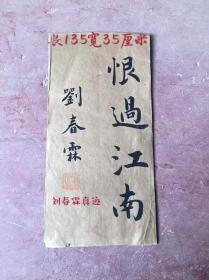 长135宽35厘米
恨過江南
劉春霖
刘春霖真迹